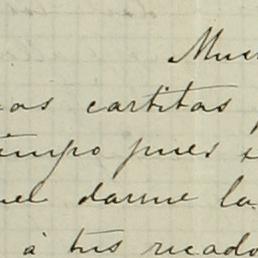 Muc
os cartitas
empo pues
el darme la
á tus recado